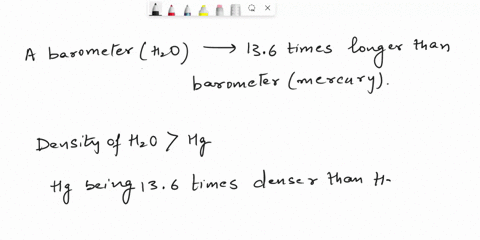 A barometer (H2O) → 13.6 times longer than
barometer (mercury).
Density of H2O > Hg
Hg being 13.6 times denser than H-